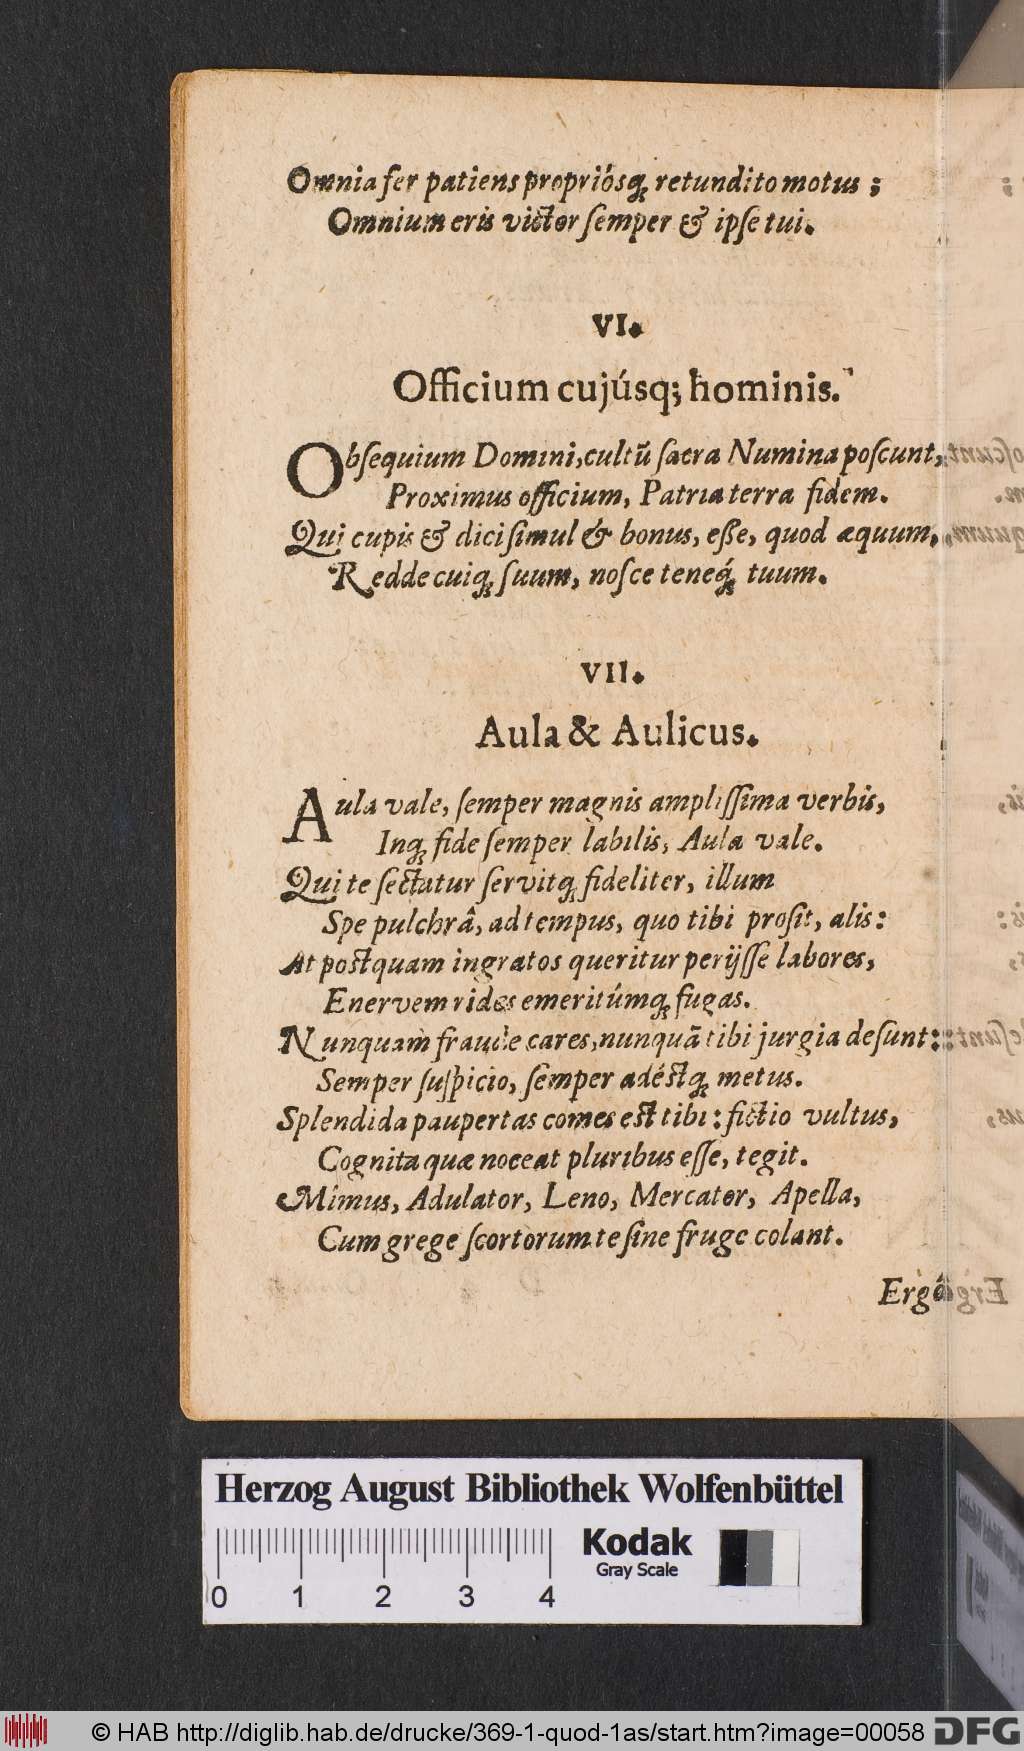 Omnia fer patiens propriósq́ꝫ retundito motus ;
Omnium eris victor ſemper & ipſe tui.
VI.
Officium cujúsq; hominis.
Obſequium Domini, cultũ ſacra Numina poſcunt,
Proximus officium, Patria terra fidem.
Qui cupis & dici ſimul & bonus, eſſe, quod æquum,
Redde cuiqꝫ ſuum, noſce teneq́ꝫ tuum.
VII.
Aula & Aulicus.
Aula vale, ſemper magnis ampliſſima verbis,
Inqꝫ fide ſemper labilis, Aula vale.
Qui te ſectatur ſervitqꝫ fideliter, illum
Spe pulchrâ, ad tempus, quo tibi proſit, alis:
At postquam ingratos queritur perijſſe labores,
Enervem rides emeritúmqꝫ fugas.
Nunquam fraude cares, nunquã tibi jurgia deſunt:
Semper ſuſpicio, ſemper adéstqꝫ metus.
Splendida paupertas comes est tibi: fictio vultus,
Cognita quæ noceat pluribus eſſe, tegit.
Mimus, Adulator, Leno, Mercator, Apella,
Cum grege ſcortorum te ſine fruge colant.
Ergò
Herzog August Bibliothek Wolfenbüttel
Kodak
Gray Scale
0 1 2 3 4
© HAB http://diglib.hab.de/drucke/369-1-quod-1as/start.htm?image=00058 DFG